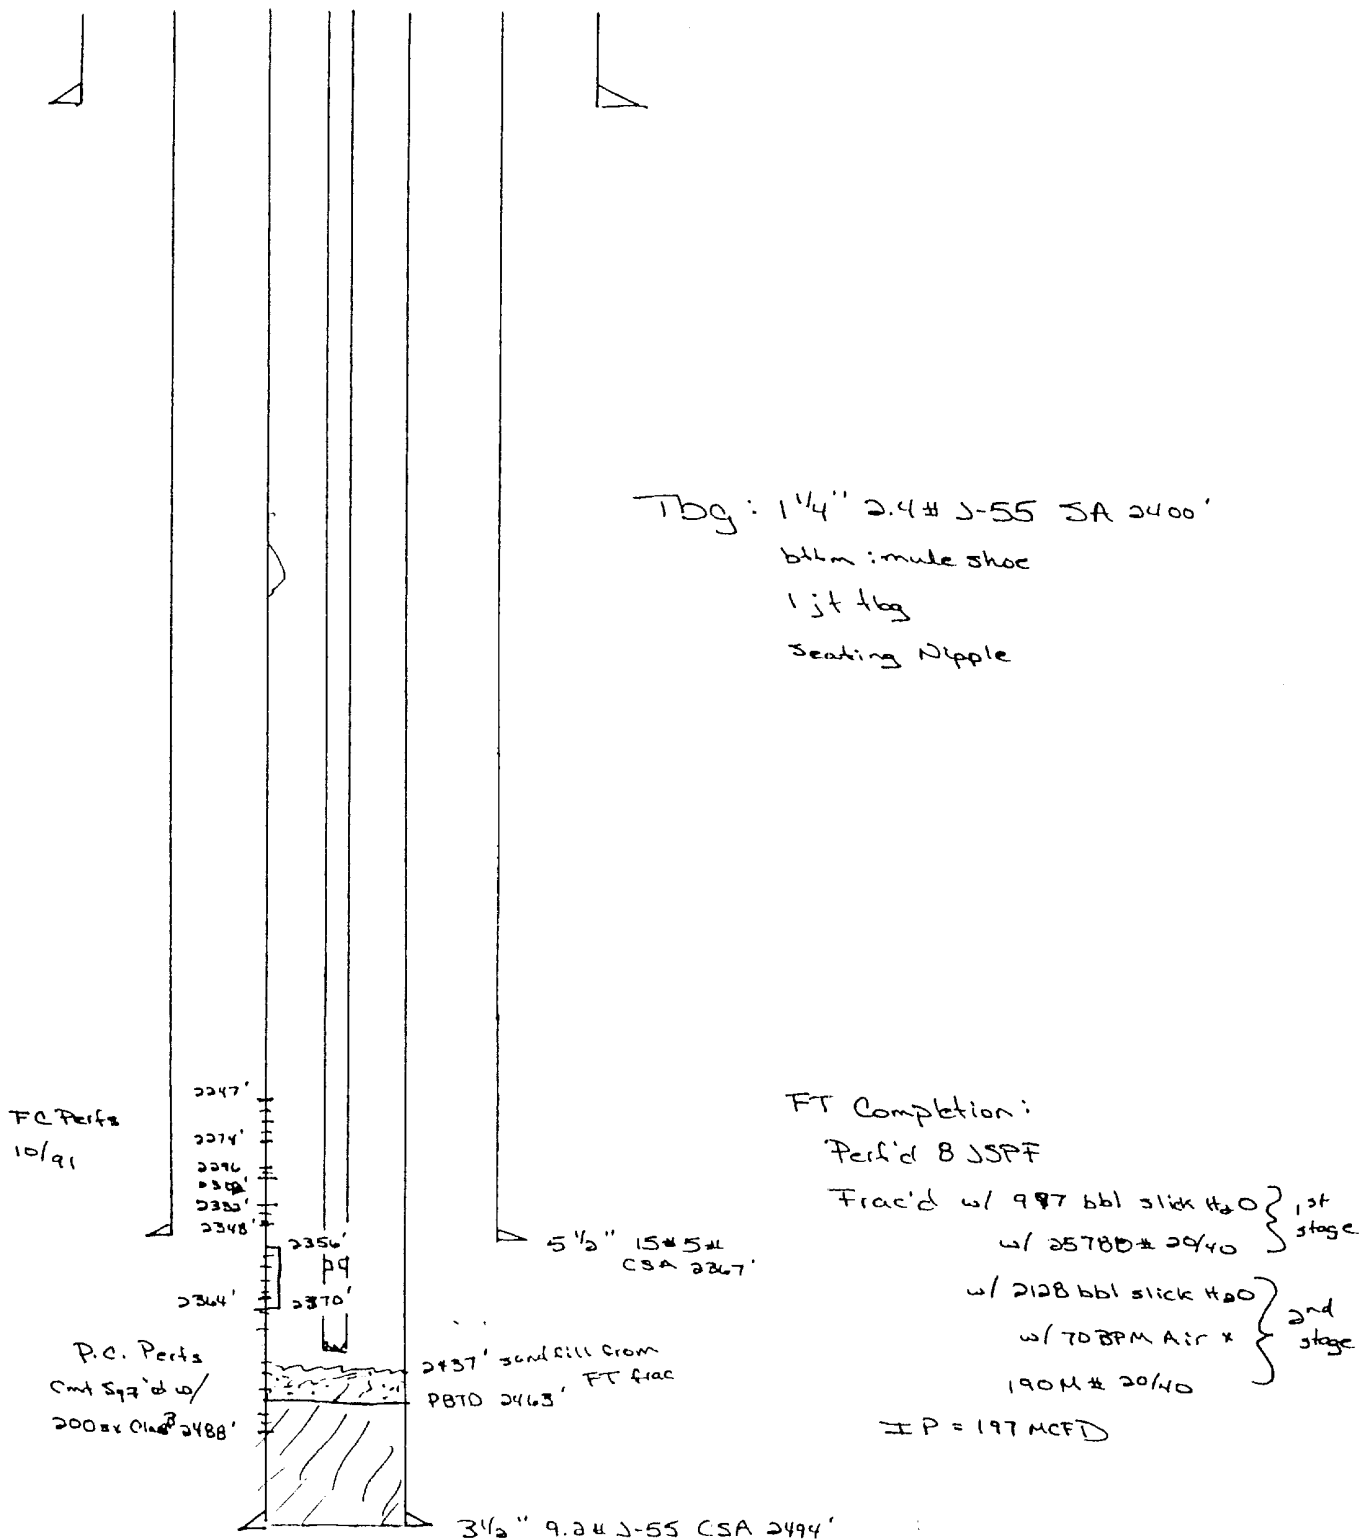 Tbg: 1 1/4" 2.4# J-55 SA 2400'
bttm: mule shoe
1 jt tbg
Seating Nipple
FC Perfs
10/91
2247'
2274'
2296
2332'
2348'
2356'
2364'
2370'
5 1/2" 15#
CSA 2367'
P.C. Perfs
Cmt Sqz'd w/
200sx Class B 2488'
2437' sand fill from
FT frac
PBTD 2463'
3 1/2" 9.2# J-55 CSA 2494'
FT Completion:
Perf'd 8 JSPF
Frac'd w/ 987 bbl slick H2O
w/ 25780# 20/40
1st
stage
w/ 2128 bbl slick H2O
w/ 70 BPM Air x
190M# 20/40
2nd
stage
IP = 197 MCFD